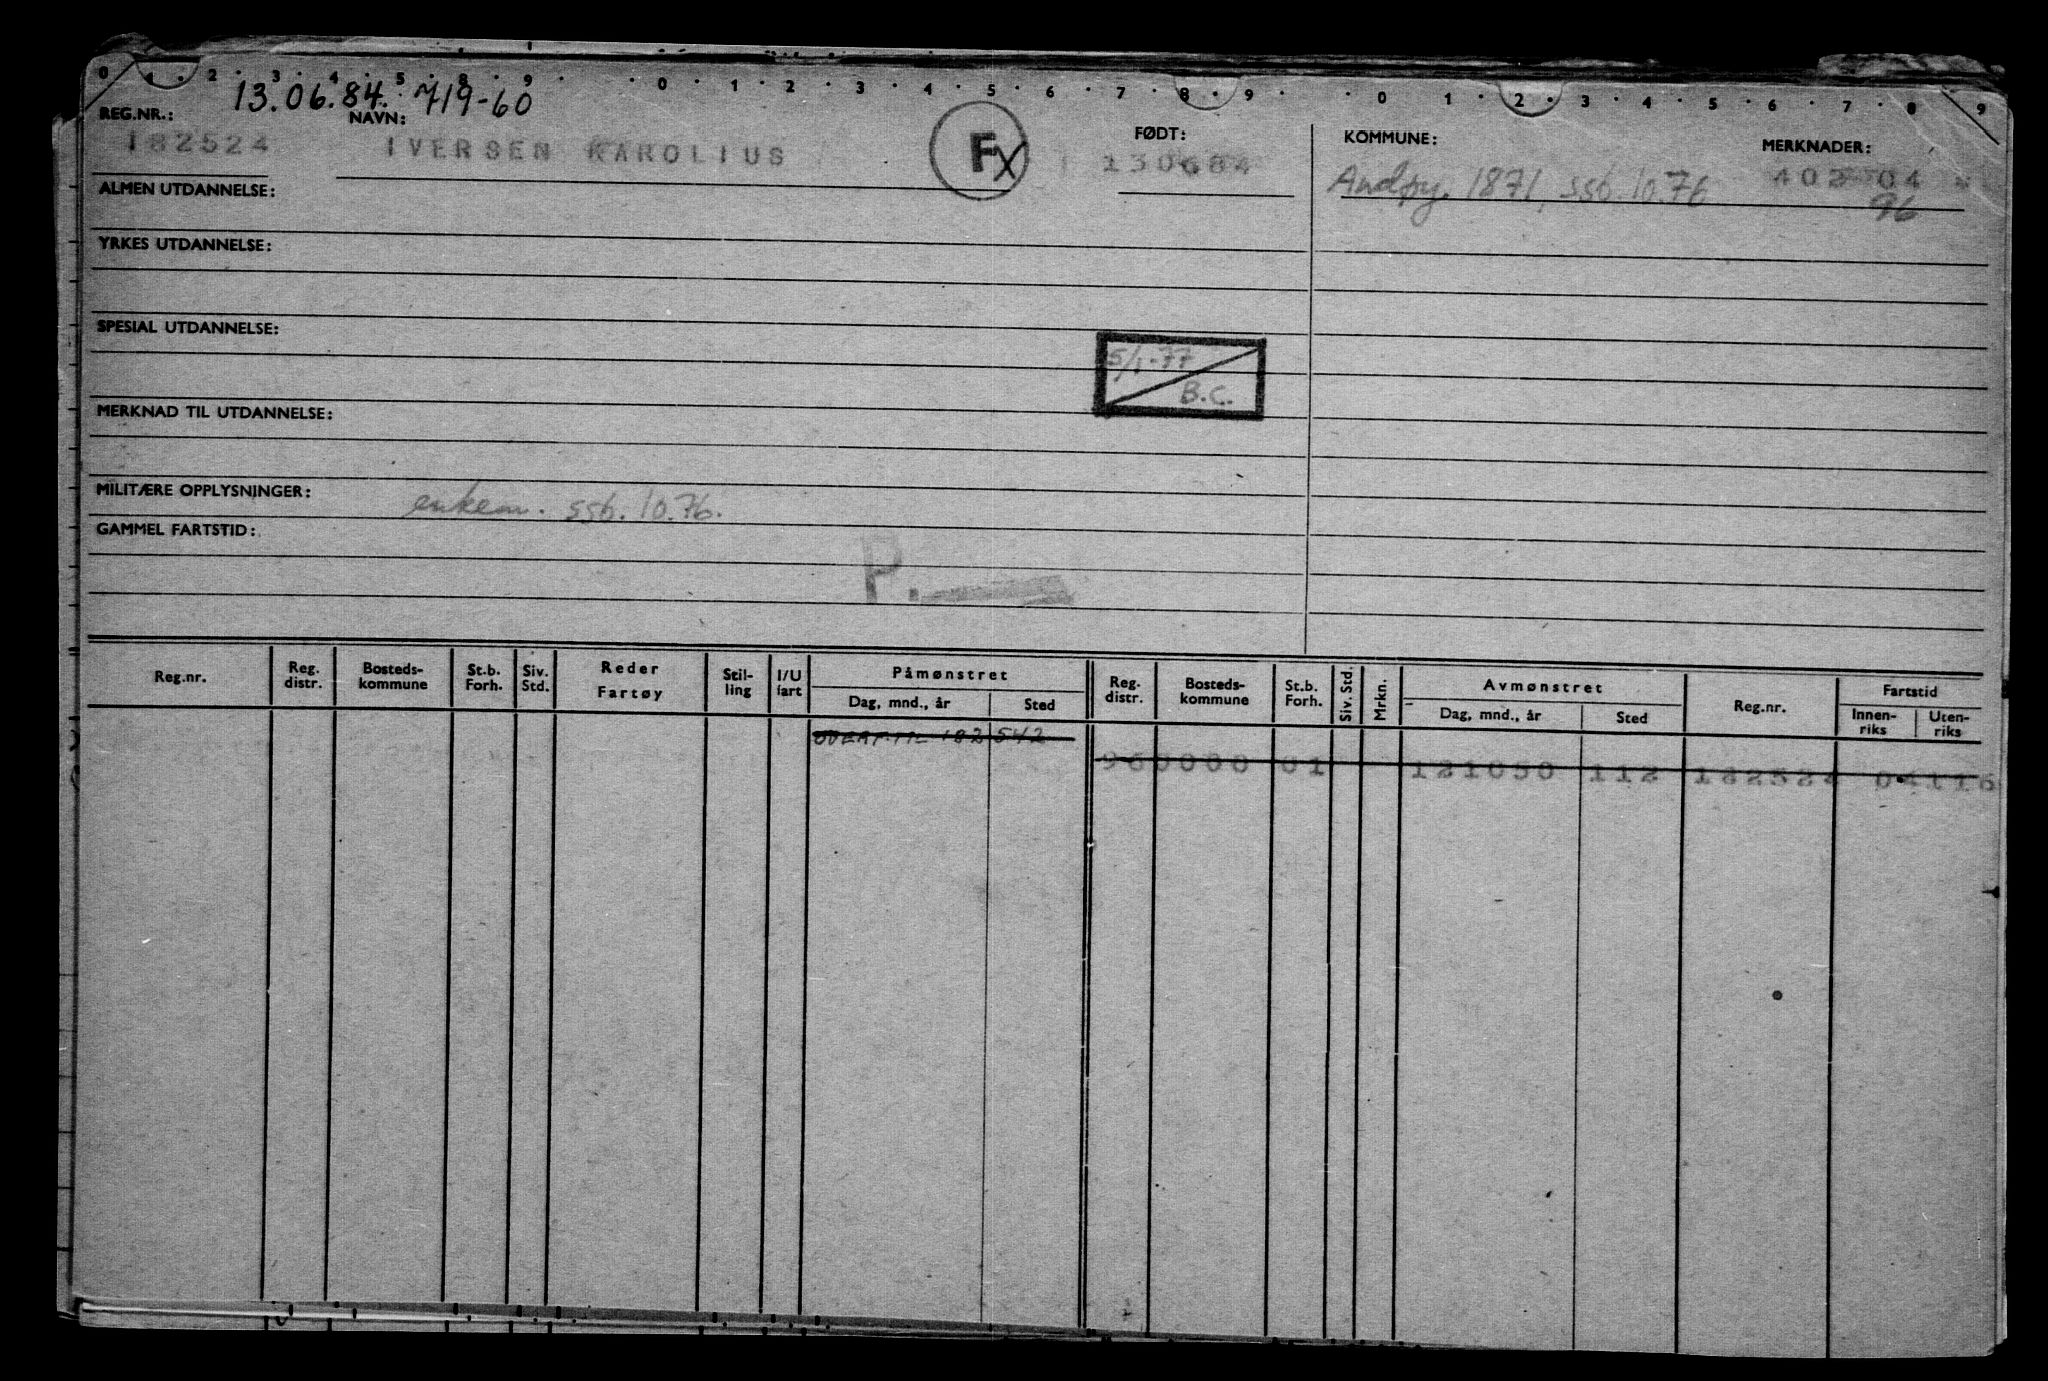 0 1 2 3 4 5 8 9 0 1 2 3 4 5 6 7 8 9 0 1 2 3 4 5 6 7 8 9
13.06.84. 719-60
REG.NR.: NAVN: FØDT: KOMMUNE: MERKNADER:
182524 IVERSEN KAROLIUS Fx 130684 Andøy. 1871, ssb. 10.76 402 04
96
ALMEN UTDANNELSE:
YRKES UTDANNELSE:
SPESIAL UTDANNELSE:
5/1-77
B.C.
MERKNAD TIL UTDANNELSE:
MILITÆRE OPPLYSNINGER: enkem. ssb. 10.76.
GAMMEL FARTSTID:
P.
Reg.nr. Reg. distr. Bosteds-kommune St.b. Forh. Siv. Std. Reder Fartøy Stil-ling I/U fart Påmønstret Reg. distr. Bosteds-kommune St.b. Forh. Siv. Std. Mrkn. Avmønstret Reg.nr. Fartstid
Dag, mnd., år Sted Dag, mnd., år Sted Innen-riks Uten-riks
OVERF. TIL 182542
960000 01 121050 112 182524 04116